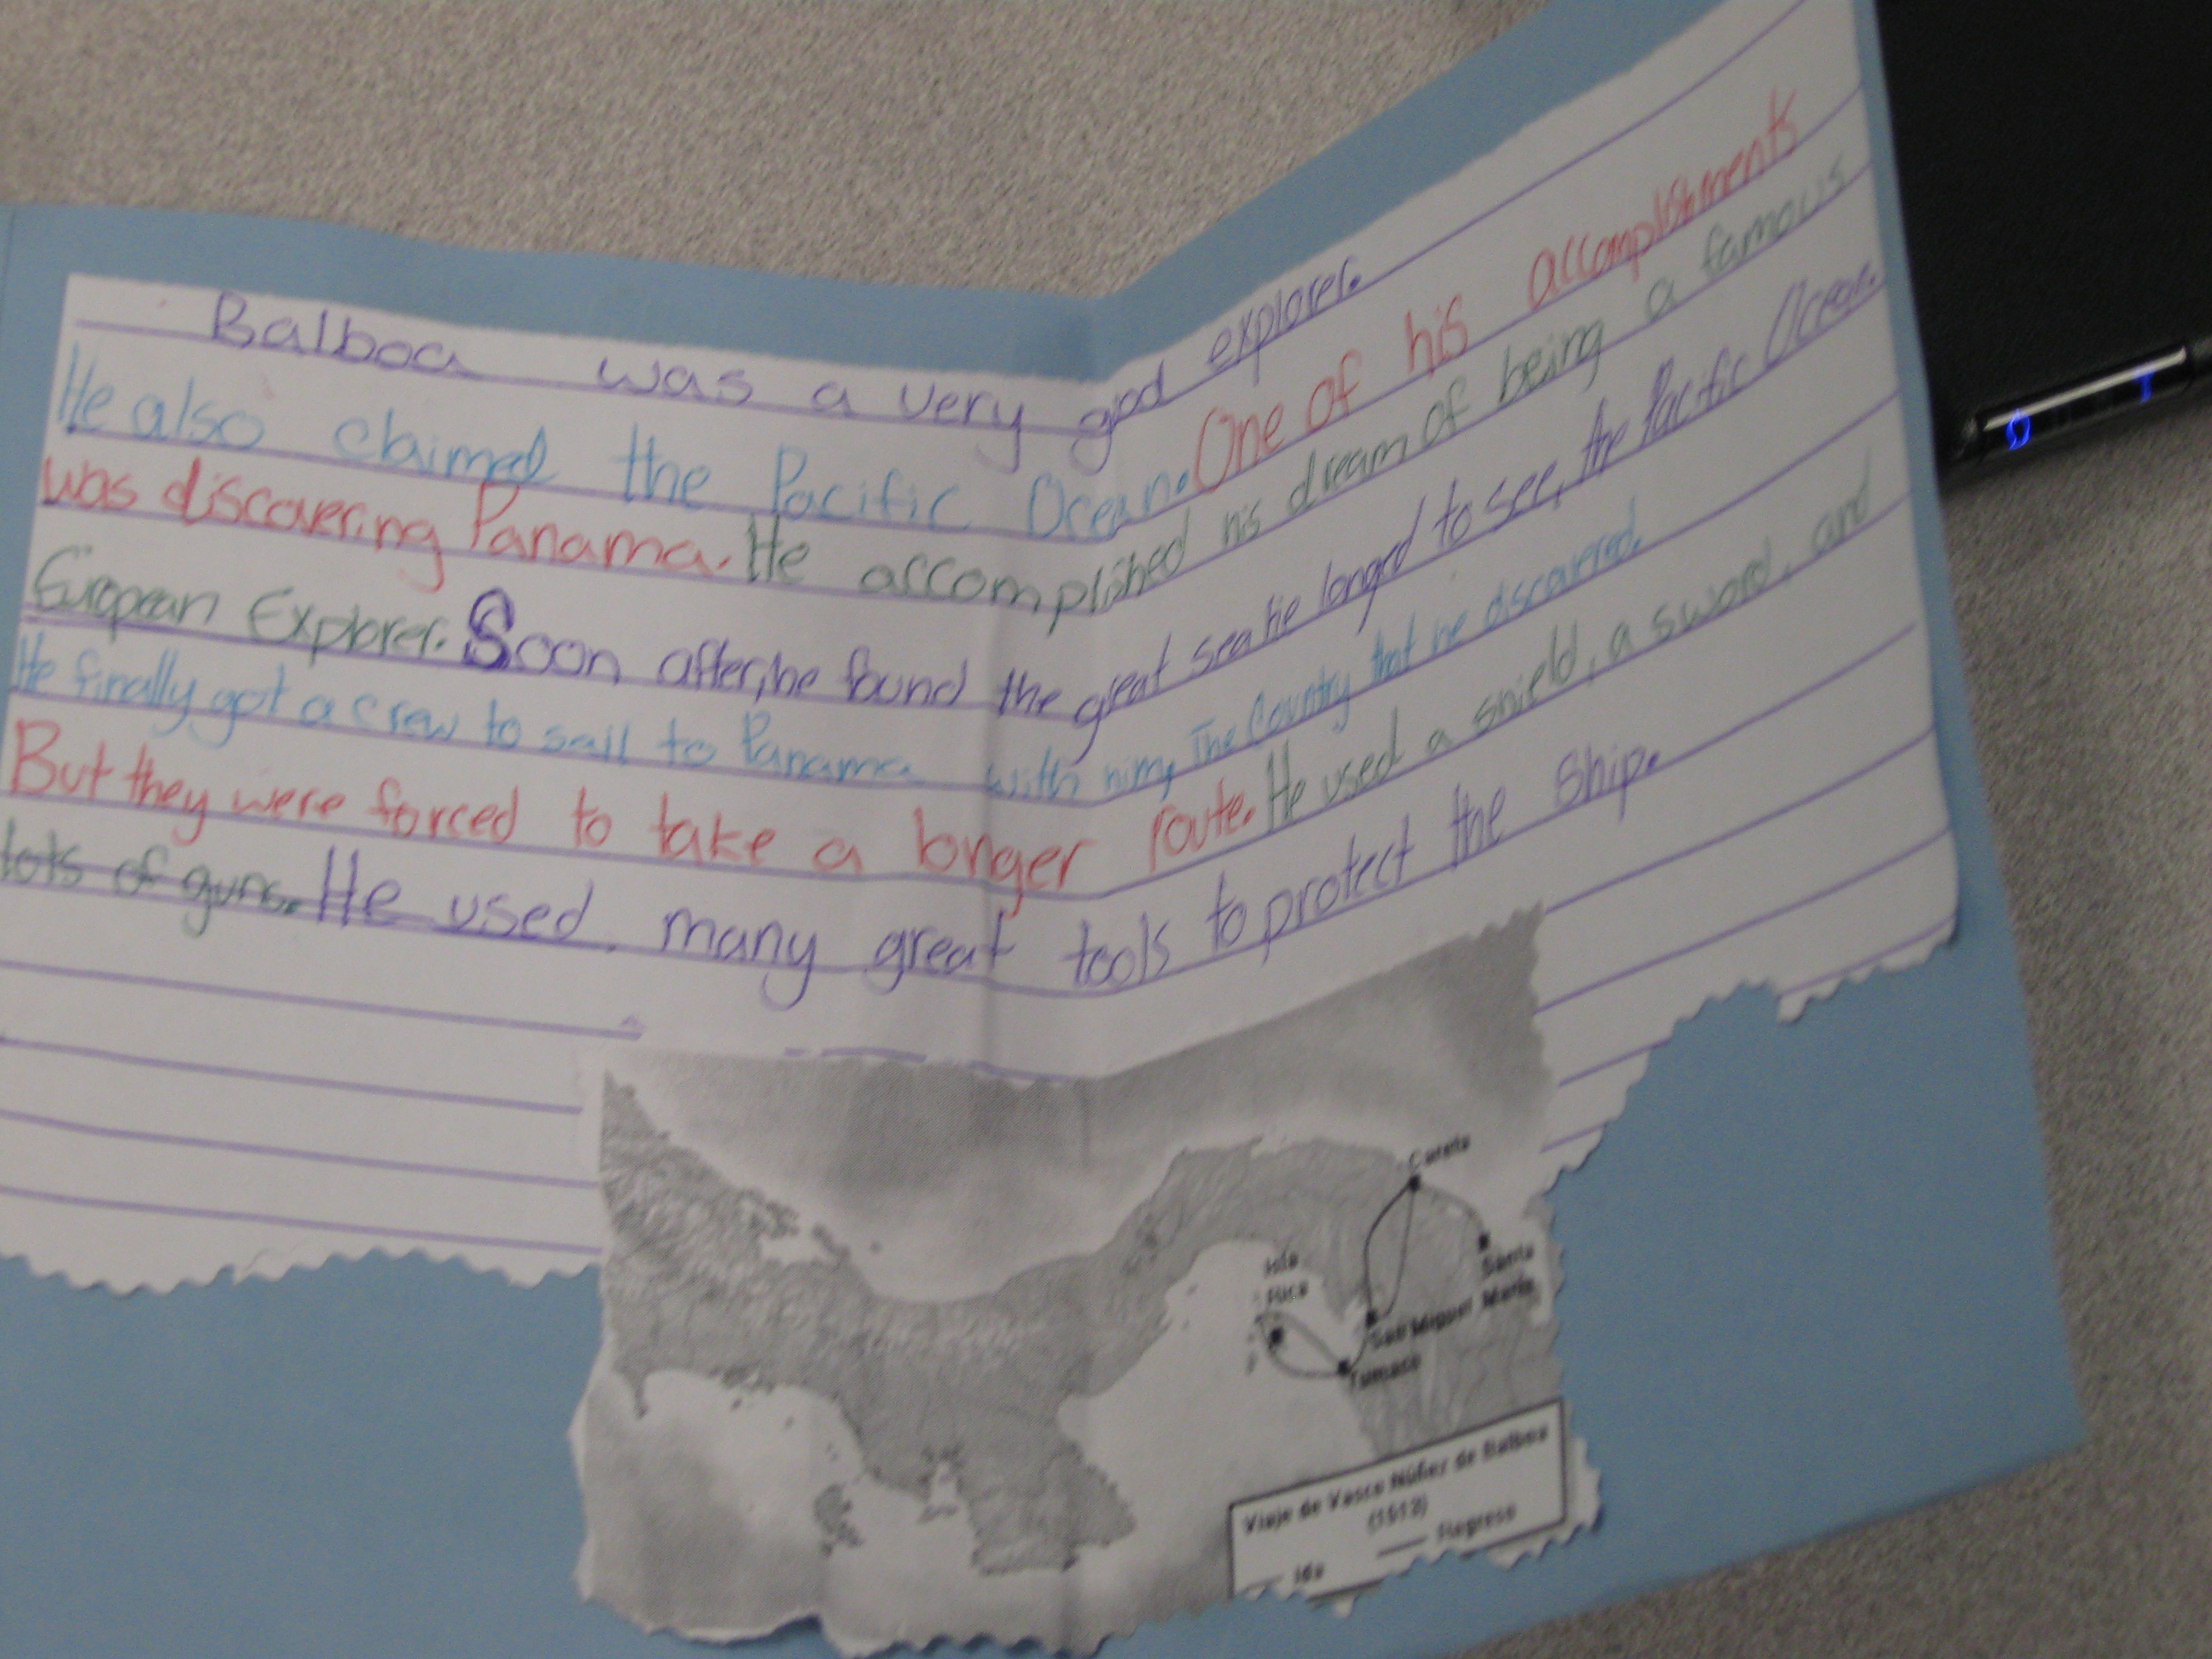 Balboa was a very good explorer.
He also claimed the Pacific Ocean. One of his accomplishments
was discovering Panama. He accomplished his dream of being a famous
European Explorer. Soon after, he found the great sea he longed to see, the Pacific Ocean.
He finally got a crew to sail to Panama with him, The Country that he discovered.
But they were forced to take a longer route. He used a shield, a sword, and
lots of guns. He used many great tools to protect the ship.
Careta
Isla
Rica
Santa
María
San Miguel
Tumaco
Viaje de Vasco Núñez de Balboa
(1513)
Ida
Regreso